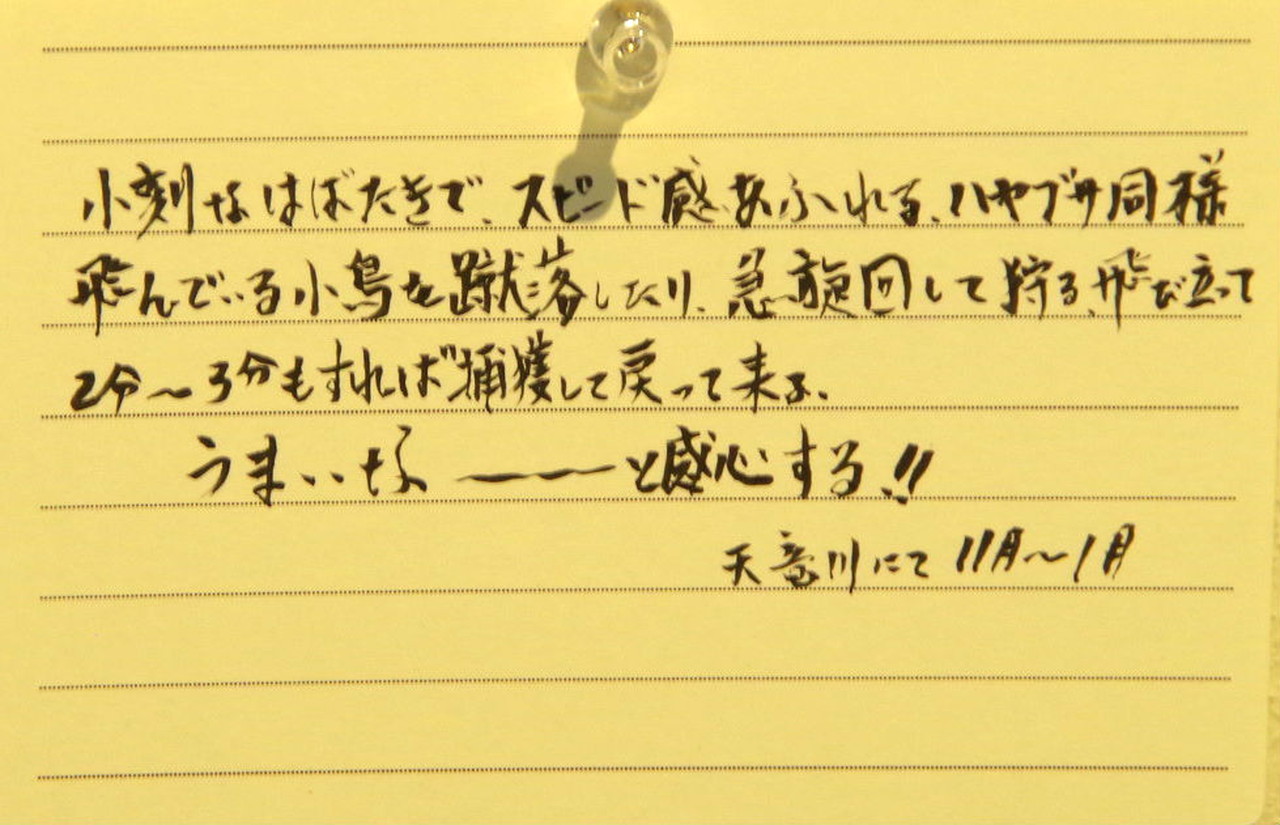 小刻なはばたきで、スピード感あふれる、ハヤブサ同様
飛んでいる小鳥を蹴落したり、急旋回して狩る、飛び立って
2分〜3分もすれば捕獲して戻って来る、
うまいなーーと感心する!!
天竜川にて 11月〜1月